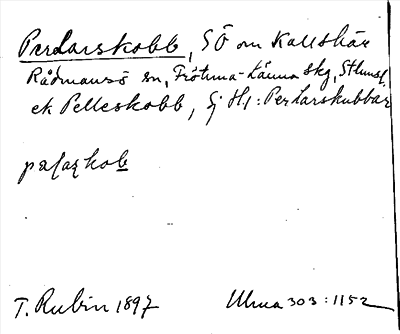 PerLarskobb, SÖ om Kallskär
Rådmansö sn, Frötuna-Länna skg, Sthlmsl.
ek Pelleskobb, Sj Hj: PerLarskubbar
palazkob
T. Rubin 1897 Uhrua 303:1152